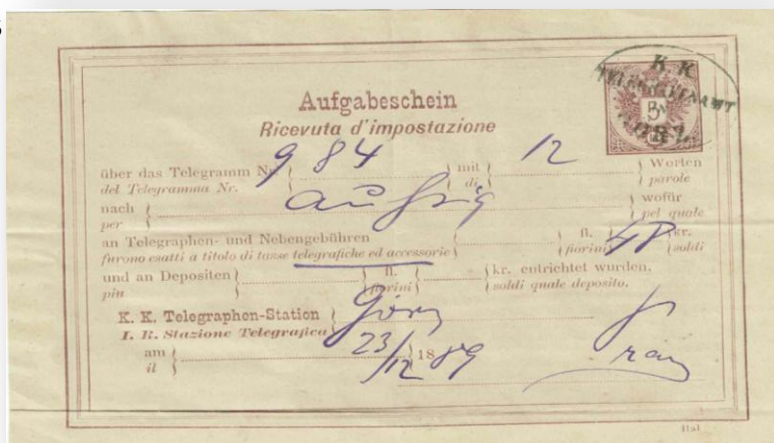 K K
TELEGRAFENAMT
GÖRZ
Aufgabeschein
Ricevuta d'impostazione
über das Telegramm Nr. 984 mit 12 Worten
del Telegramma Nr. di parole
nach Aussig wofür
per pel quale
an Telegraphen- und Nebengebühren fl. 48 kr.
furono esatti a titolo di tasse telegrafiche ed accessorie fiorini soldi
und an Depositen fl. kr. entrichtet wurden.
piu fiorini soldi quale deposito.
K. K. Telegraphen-Station Görz
I. R. Stazione Telegrafica
am 23/12 1889
il
(Ital.)